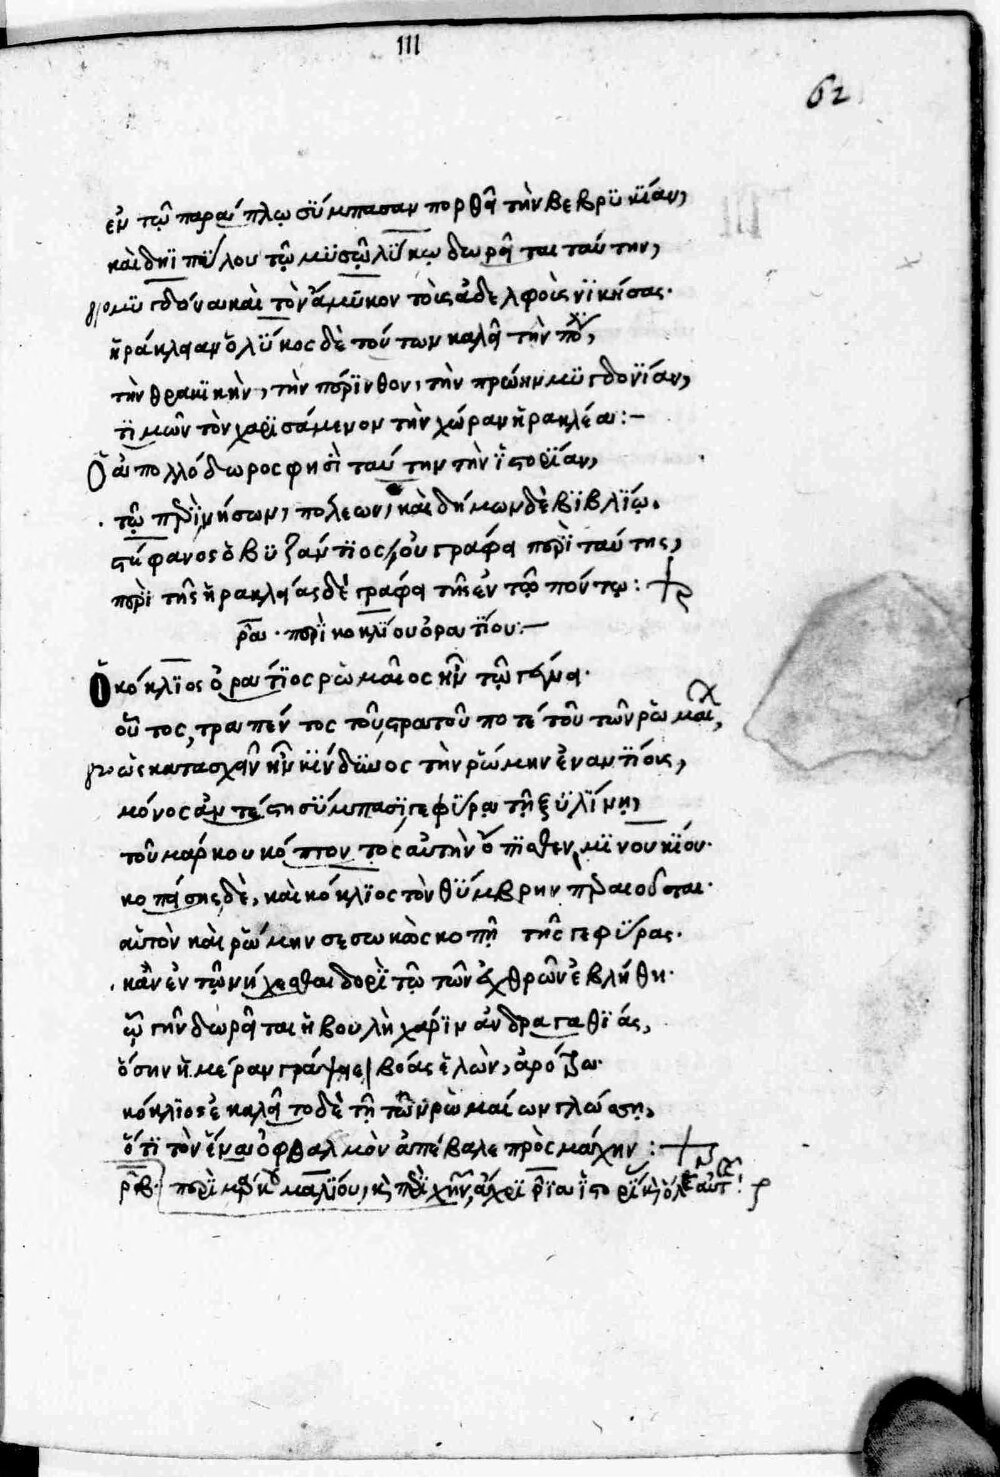 III
62
ἐν τῷ παράπλῳ σΰμπασαν πορθεῖ τὴν Βεβρϋκΐαν,
καὶ δηϊπΰλου τῷ μϋσῷ λΰκῳ δωρεῖται ταύτην,
μϋγδόνα καὶ τὸν ἄμϋκον τοῖς ἀδελφοῖς νϊκήσας·
ἡράκλειαν ὁ λΰκος δὲ τούτων καλεῖ τὴν
τὴν θρακϊκὴν, τὴν πέρϊνθον, τὴν πρώην μϋγδονΐαν,
τϊμῶν τὸν χαρϊσάμενον τὴν χώραν ἡρακλέα:–
Ὁ ἀπολλόδωρος φησὶ ταύτην τὴν ἱστορΐαν,
τῷ περὶ νήσων, πόλεων, καὶ δήμων δὲ βϊβλΐῳ.
στέφανος ὁ βϋζάντϊος, οὐ γράφει περὶ ταύτης,
περὶ τῆς ἡρακλείας δὲ γράφει τῆς ἐν τῷ πόντῳ:
ρια · περὶ κοκλΐου ὁρατΐου:–
Ὁ κόκλϊος ὁ ράτϊος ῥωμαῖος ἦν τῷ γένει·
οὗτος, τραπέντος τοῦ στρατοῦ ποτέ τοῦ τῶν ῥωμαι,
ὡς κατασχεῖν ἦν κΐνδϋνος τὴν ῥώμην ἐναντΐοις,
μόνος ἀντέστη σΰμπασϊ, γεφΰρᾳ τῇ ξϋλΐνῃ,
τοῦ μάρκου κόπτοντος αὐτὴν ὄπϊσθεν, μϊνουκΐου·
κοπείσης δὲ, καὶ κόκλϊος τὸν θΰμβρην περαιοῦται·
αὑτὸν καὶ ῥώμην σεσωκὼς κοπῇ τῆς γεφΰρας·
κἂν ἐν τῷ νήχεσθαι δορὶ τῷ τῶν ἐχθρῶν ἐβλήθη·
ᾧ γῆν δωρεῖται ἡ βουλὴ χάρϊν ἀνδραγαθΐας,
ὅσην ἡμέραν γράψειε βόας ἑλὼν, ἀρότρῳ·
κόκλϊος ἐκαλεῖτο δὲ τῇ τῶν ῥωμαίων γλώσσῃ,
ὅτϊ τὸν ἕνα ὀφθαλμὸν ἀπέβαλε πρὸς μάχην:
ριβ·